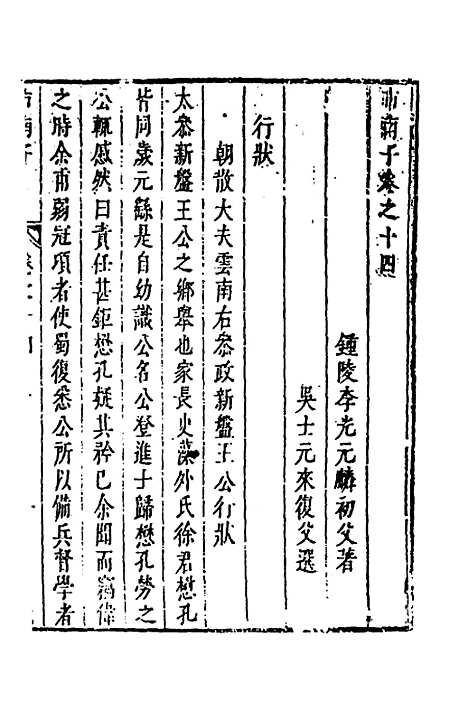 市南子卷之十四
鍾陵李光元麟初父著
吳士元來復父選
行狀
朝散大夫雲南右叅政新盤王公行狀
太叅新盤王公之鄉舉也家長史藻外氏徐君懋孔
皆同歲元繇是自幼識公名公登進士歸懋孔勞之
公輒慼然曰責任甚鉅懋孔疑其矜已余聞而竊偉
之時余甫弱冠項者使蜀復悉公所以備兵督學者
市南子